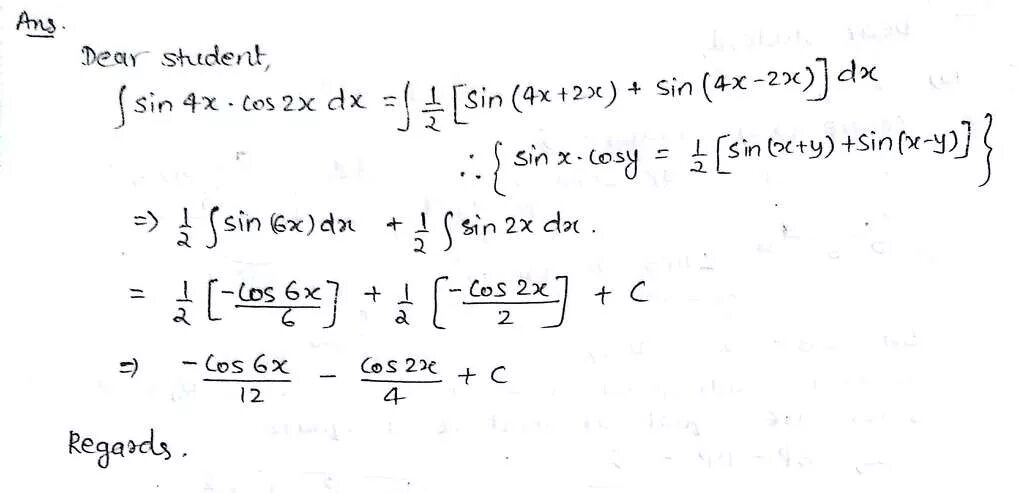 Ans.
Dear student,
∫ sin 4x · cos 2x dx = ∫ 1/2 [sin (4x+2x) + sin (4x-2x)] dx
∴ { sin x · cosy = 1/2 [sin(x+y) + sin(x-y)] }
=> 1/2 ∫ sin (6x) dx + 1/2 ∫ sin 2x dx .
= 1/2 [-cos 6x/6] + 1/2 [-cos 2x/2] + C
=> -cos 6x/12 - cos 2x/4 + C
Regards.